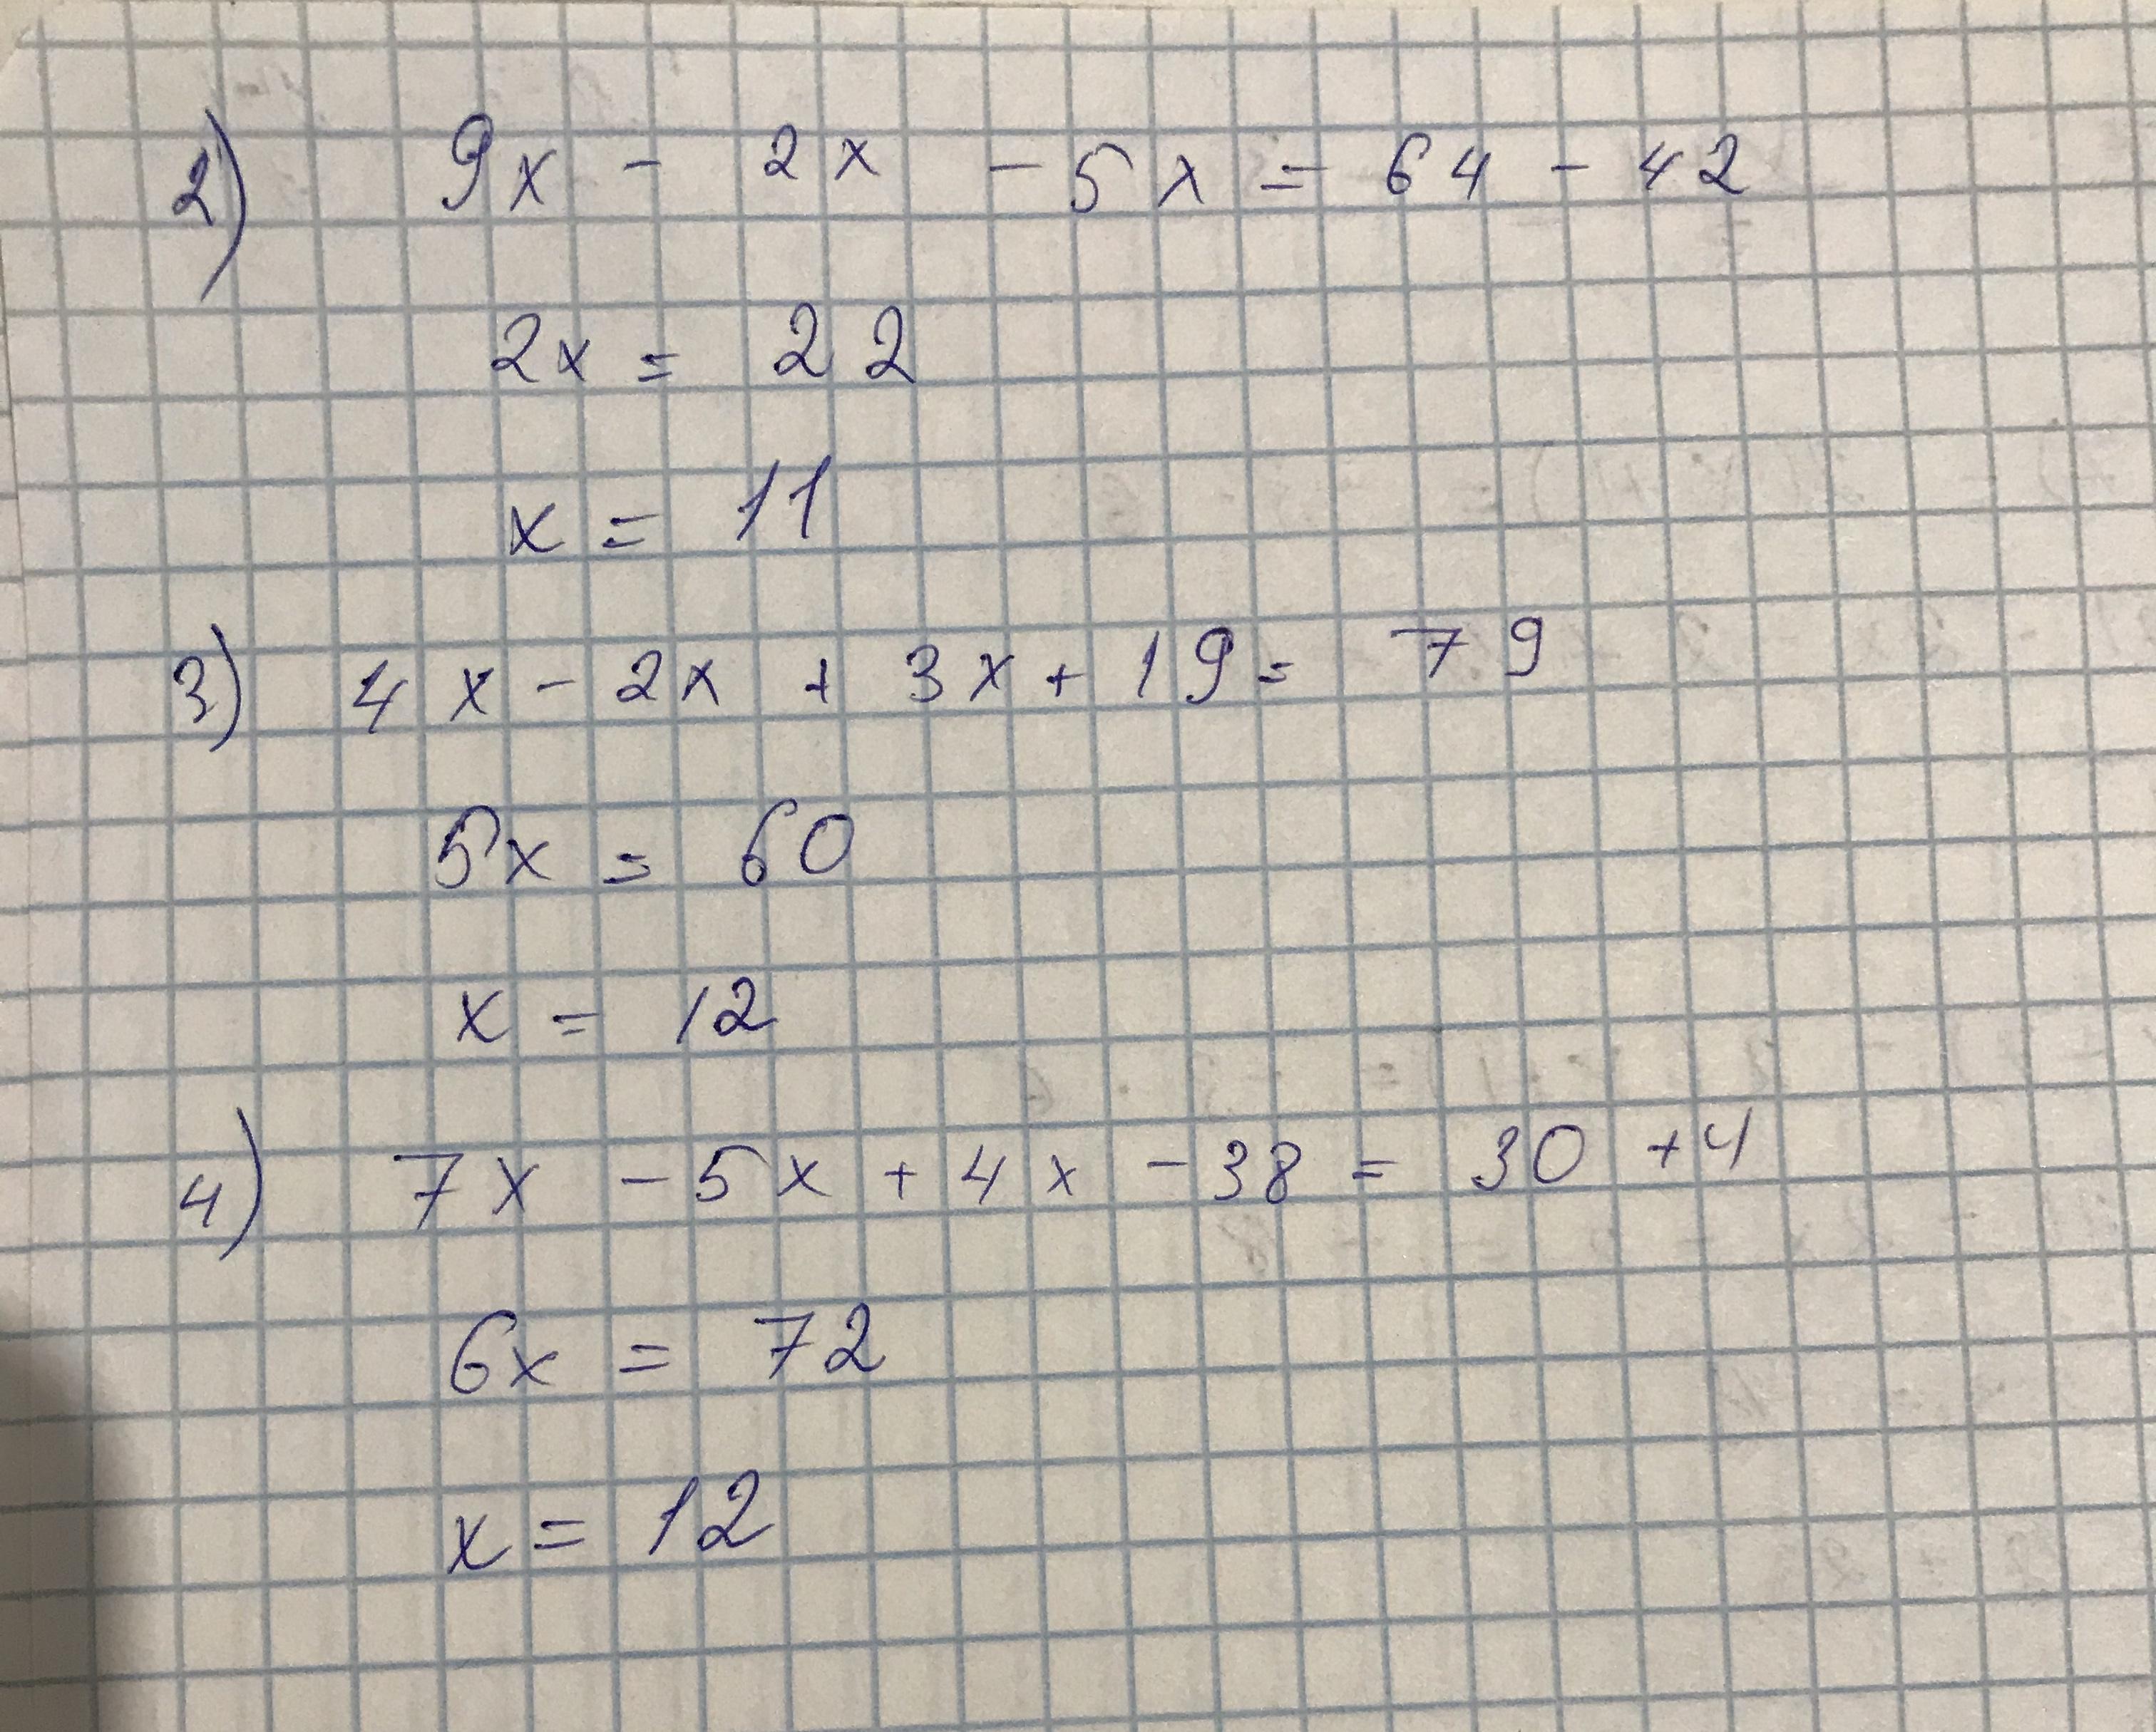 2) 9x - 2x - 5x = 64 - 42
2x = 22
x = 11
3) 4x - 2x + 3x + 19 = 79
5x = 60
x = 12
4) 7x - 5x + 4x - 38 = 30 + 4
6x = 72
x = 12